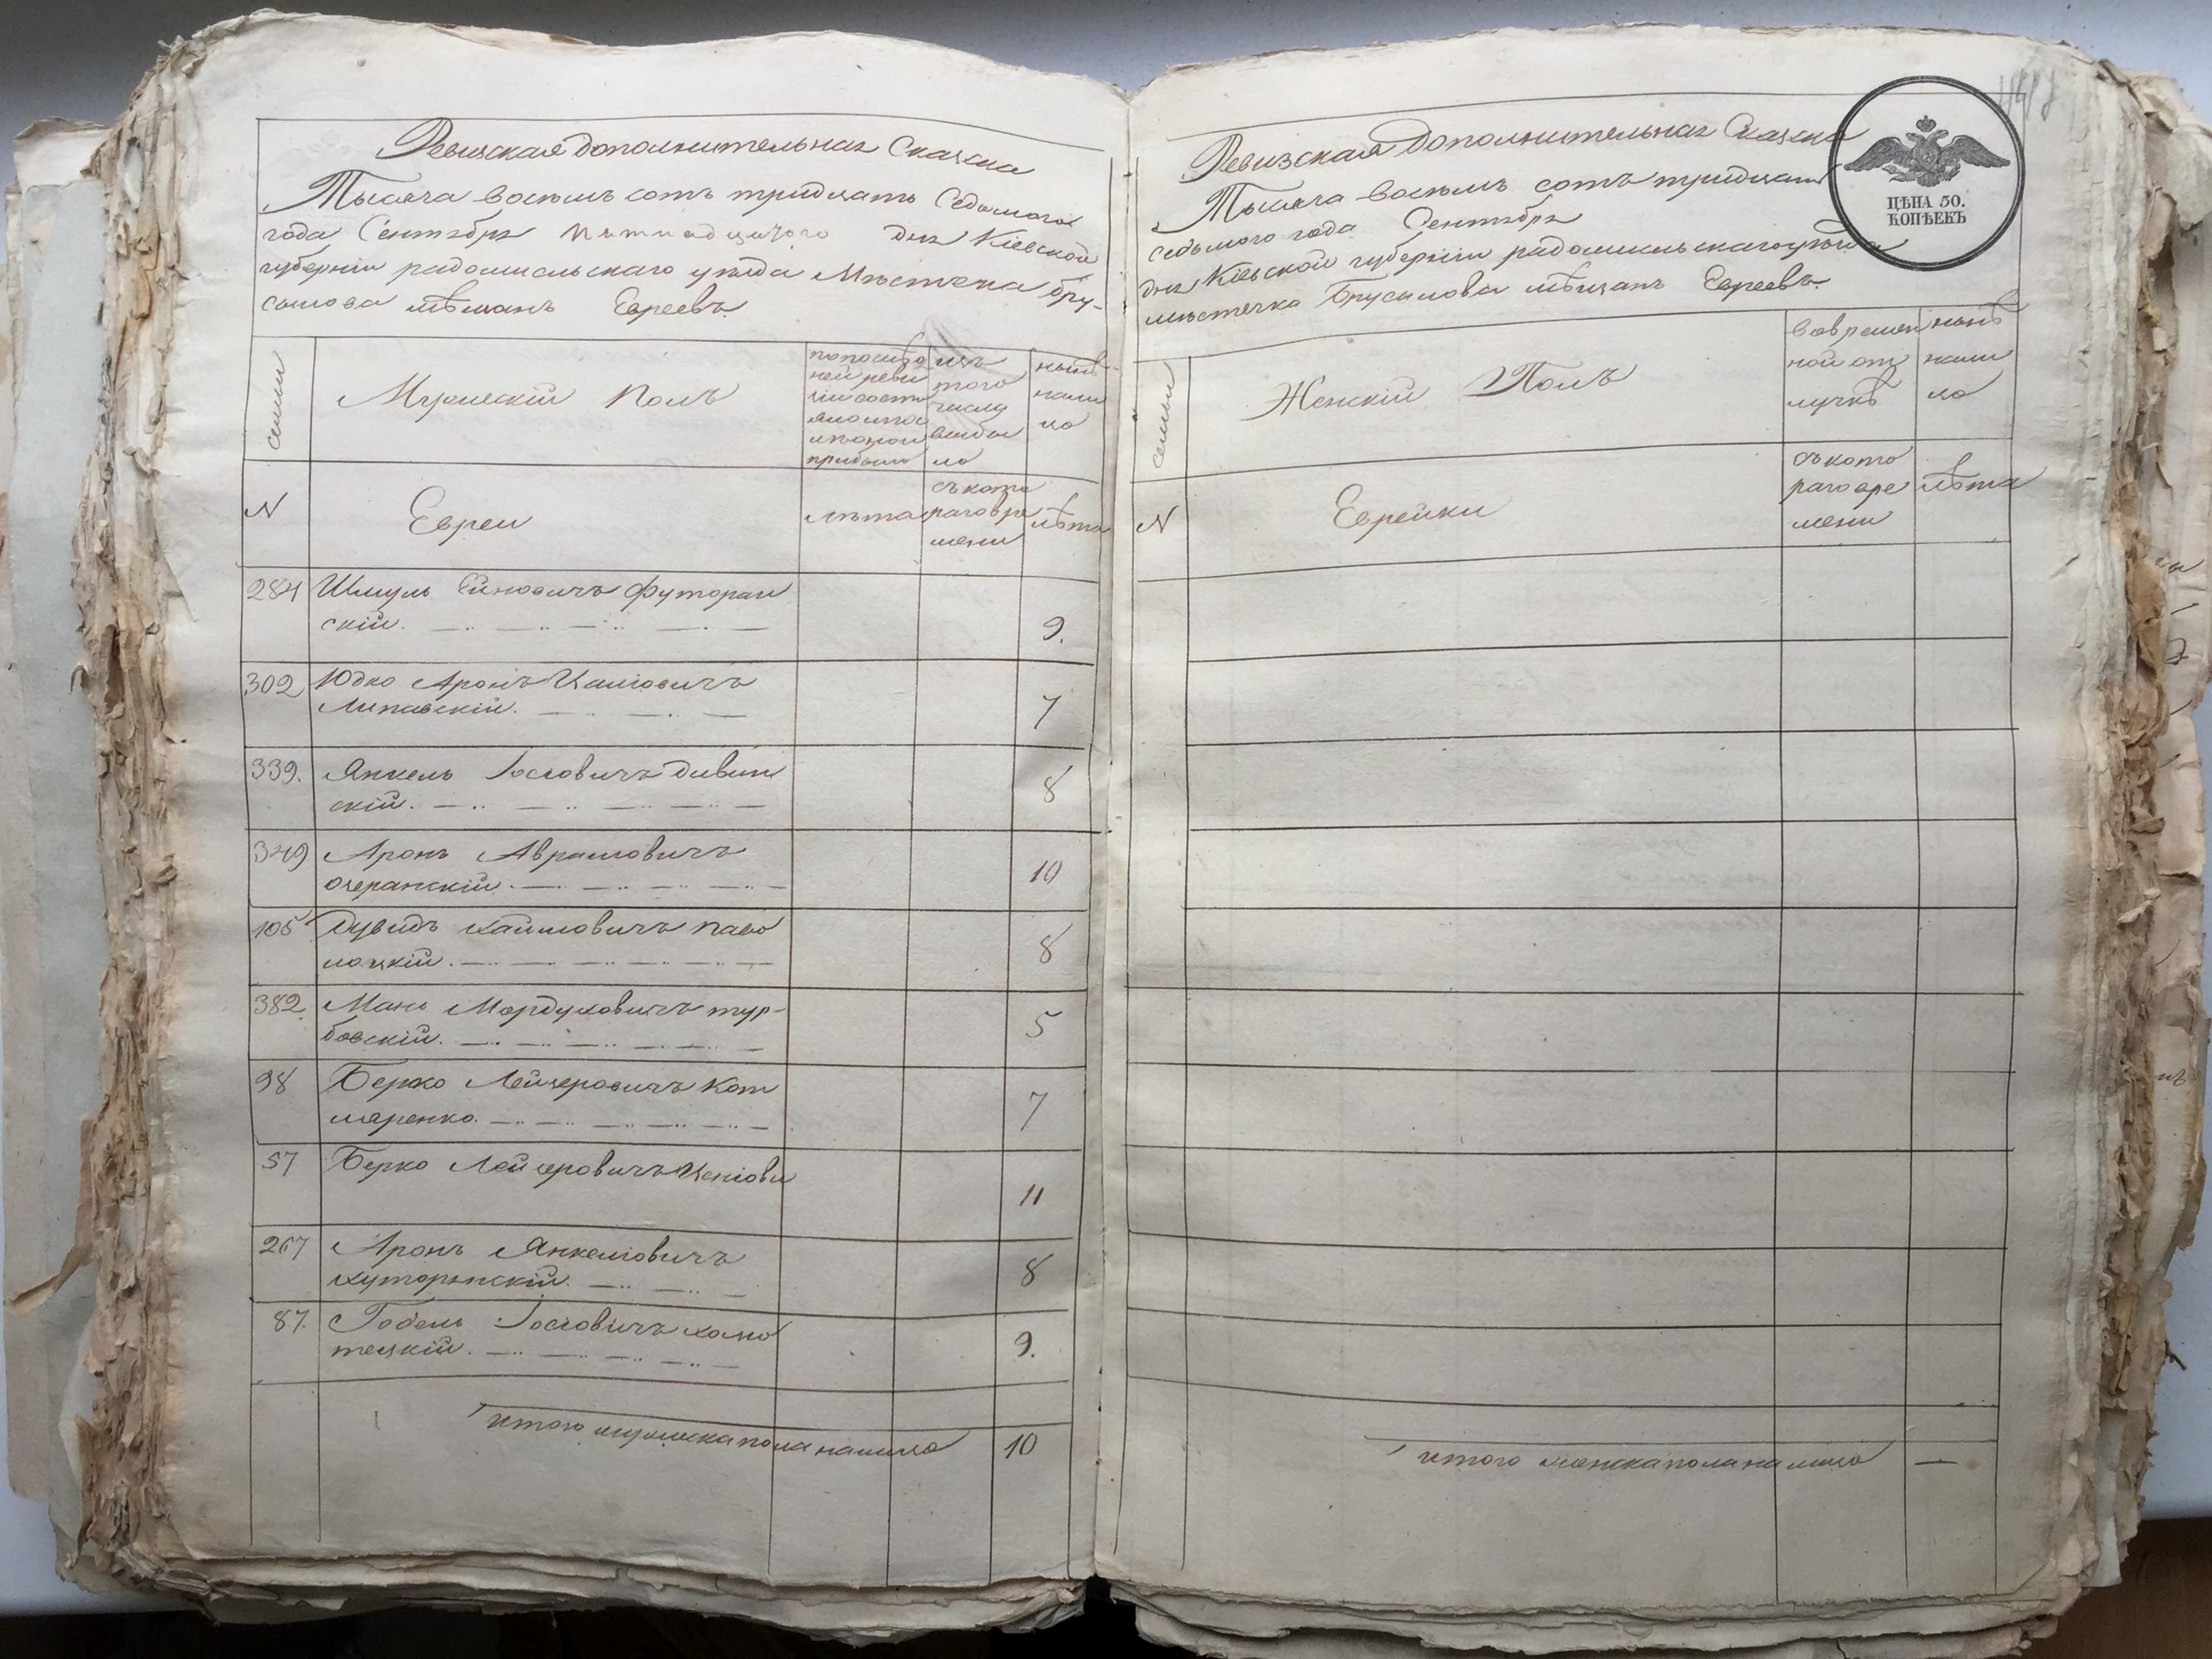 Ревизская дополнительная Сказка
Тысяча восемь сотъ тридцать Седьмого
года Сентября пятнадцатого дня Кіевской
губерніи радомысльскаго уезда Местечка бру-
силова мѣщанъ Евреевъ.
семьи
Мужескій полъ
по послѣд
ней реви
зіи состо
яло и по
слѣ оной
прибыло
изъ
того
числа
выбы
ло
нынѣ
нали
цо
N
Евреи
лѣта
съ кото
раго вре
мени
лѣта
284 Шмуль Ейновичъ футоран
скій. 9.
302 Юдко Аронъ Хаимовичъ
Липавскій. 7
339. Янкель Іосіовичъ дивин
скій. 8
349 Аронъ Аврамовичъ
очеранскій. 10
105 Дувидъ хаимовичъ паво
лоцкій. 8
382. Мань Мордуховичъ тур-
бовскій. 5
98 Берко Лейзеровичъ Кот
ляренко. 7
57 Берко Лейзеровичъ
11
267 Аронъ Янкеліовичъ
хуторянскій. 8
87. Гобель Іосіовичъ хомо
тецкій. 9.
итого мужеска пола налицо 10
Ревизская Дополнительная Сказка
Тысяча восемь сотъ тридцать
седьмого года Сентября
дня Кіевской губерніи радомысльскаго уезда
местечка Брусилова мѣщанъ Евреевъ.
ЦѢНА 50.
КОПѢЕКЪ
семьи
Женскій Полъ
во времен
ной от
лучкѣ
нынѣ
нали
цо
N
Еврейки
съ кото
раго вре
мени
лѣта
итого женска пола налицо —